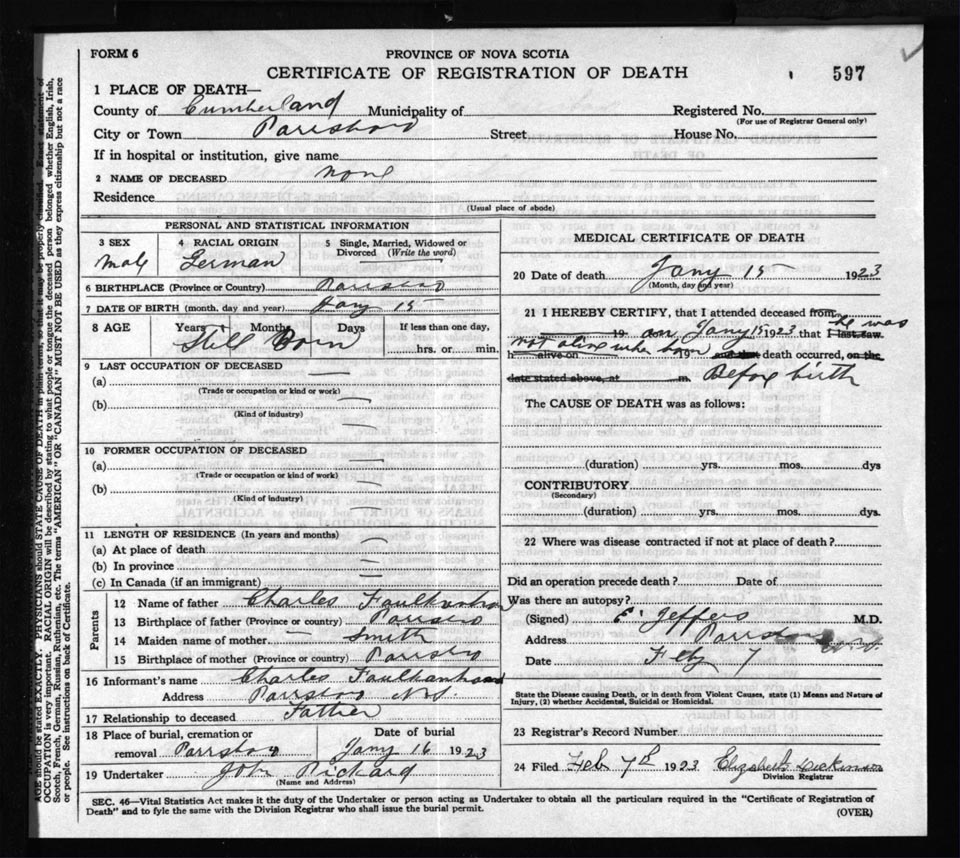 FORM 6 PROVINCE OF NOVA SCOTIA
CERTIFICATE OF REGISTRATION OF DEATH 597
1 PLACE OF DEATH—
County of Cumberland Municipality of Registered No.
(For use of Registrar General only)
City or Town Parrsboro Street House No.
If in hospital or institution, give name
2 NAME OF DECEASED None
Residence
(Usual place of abode)
PERSONAL AND STATISTICAL INFORMATION
3 SEX 4 RACIAL ORIGIN 5 Single, Married, Widowed or
Divorced (Write the word)
Male German
6 BIRTHPLACE (Province or Country) Parrsboro
7 DATE OF BIRTH (month, day and year) Jany 15
8 AGE Years Months Days If less than one day,
Still Born hrs. or min.
9 LAST OCCUPATION OF DECEASED
(a)
(Trade or occupation or kind or work)
(b)
(Kind of industry)
10 FORMER OCCUPATION OF DECEASED
(a)
(Trade or occupation or kind of work)
(b)
(Kind of industry)
11 LENGTH OF RESIDENCE (In years and months)
(a) At place of death
(b) In province
(c) In Canada (if an immigrant)
Parents
12 Name of father Charles
13 Birthplace of father (Province or country) Parrsboro
14 Maiden name of mother Smith
15 Birthplace of mother (Province or country) Parrsboro
16 Informant's name Charles
Address Parrsboro N.S.
17 Relationship to deceased Father
18 Place of burial, cremation or Date of burial
removal Parrsboro Jany 16 1923
19 Undertaker John Rickard
(Name and Address)
MEDICAL CERTIFICATE OF DEATH
20 Date of death Jany 15 1923
(Month, day and year)
21 I HEREBY CERTIFY, that I attended deceased from
19 on Jany 15 1923 that I last saw he was
h alive on not alive when born 19 and that death occurred, on the
date stated above, at m. Before birth
The CAUSE OF DEATH was as follows:
(duration) yrs. mos. dys
CONTRIBUTORY
(Secondary)
(duration) yrs. mos. dys.
22 Where was disease contracted if not at place of death?
Did an operation precede death? Date of
Was there an autopsy?
(Signed) Jeffers M.D.
Address Parrsboro
Date Feby 7
State the Disease causing Death, or in death from Violent Causes, state (1) Means and Nature of
Injury, (2) whether Accidental, Suicidal or Homicidal.
23 Registrar's Record Number
24 Filed Feb 7th 1923 Elizabeth Dickinson
Division Registrar
SEC. 46—Vital Statistics Act makes it the duty of the Undertaker or person acting as Undertaker to obtain all the particulars required in the "Certificate of Registration of
Death" and to fyle the same with the Division Registrar who shall issue the burial permit.
(OVER)
AGE should be stated EXACTLY. PHYSICIANS should STATE CAUSE OF DEATH in plain terms, so that it may be properly classified. Exact statement of
OCCUPATION is very important. RACIAL ORIGIN will be described by stating to what people or tongue the deceased person belonged whether English, Irish,
Scotch, French, German, Russian, Ruthenian, etc. The terms "AMERICAN" OR "CANADIAN" MUST NOT BE USED as they express citizenship but not a race
or people. See instructions on back of Certificate.